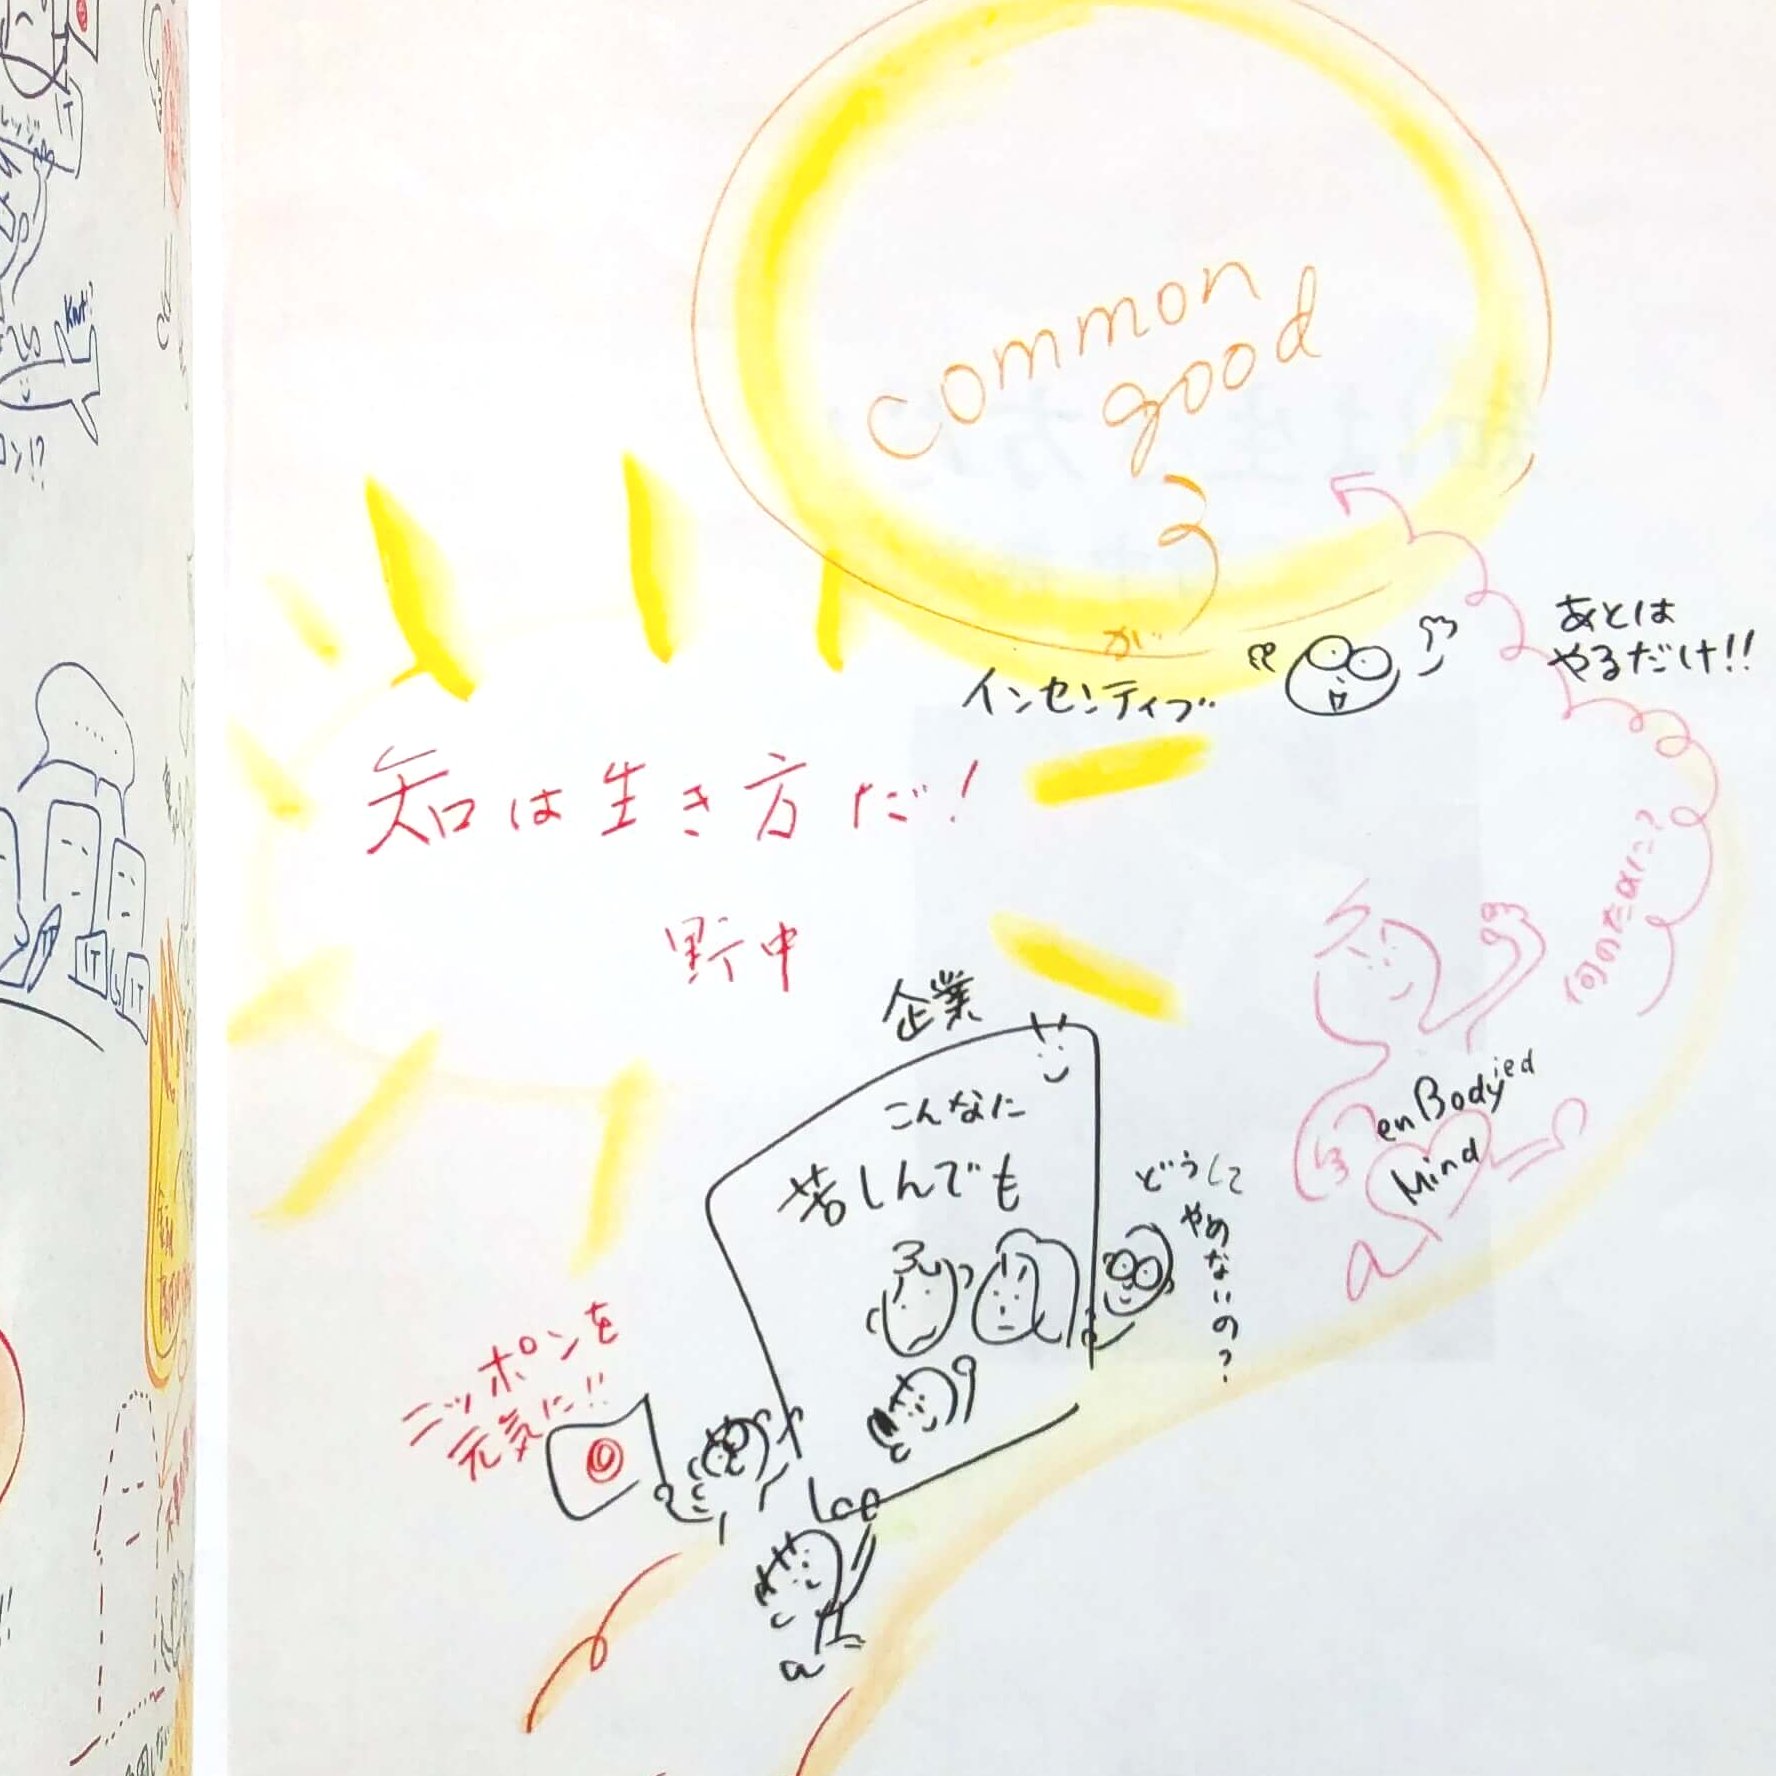 common
good
が
インセンティブ
あとは
やるだけ!!
知は生き方だ!
野中
何のために?
enBodyied
Mind
企業
こんなに
苦しんでも
どうして
やめないの?
ニッポンを
元気に!!
IT
Knt!?
IT
IT